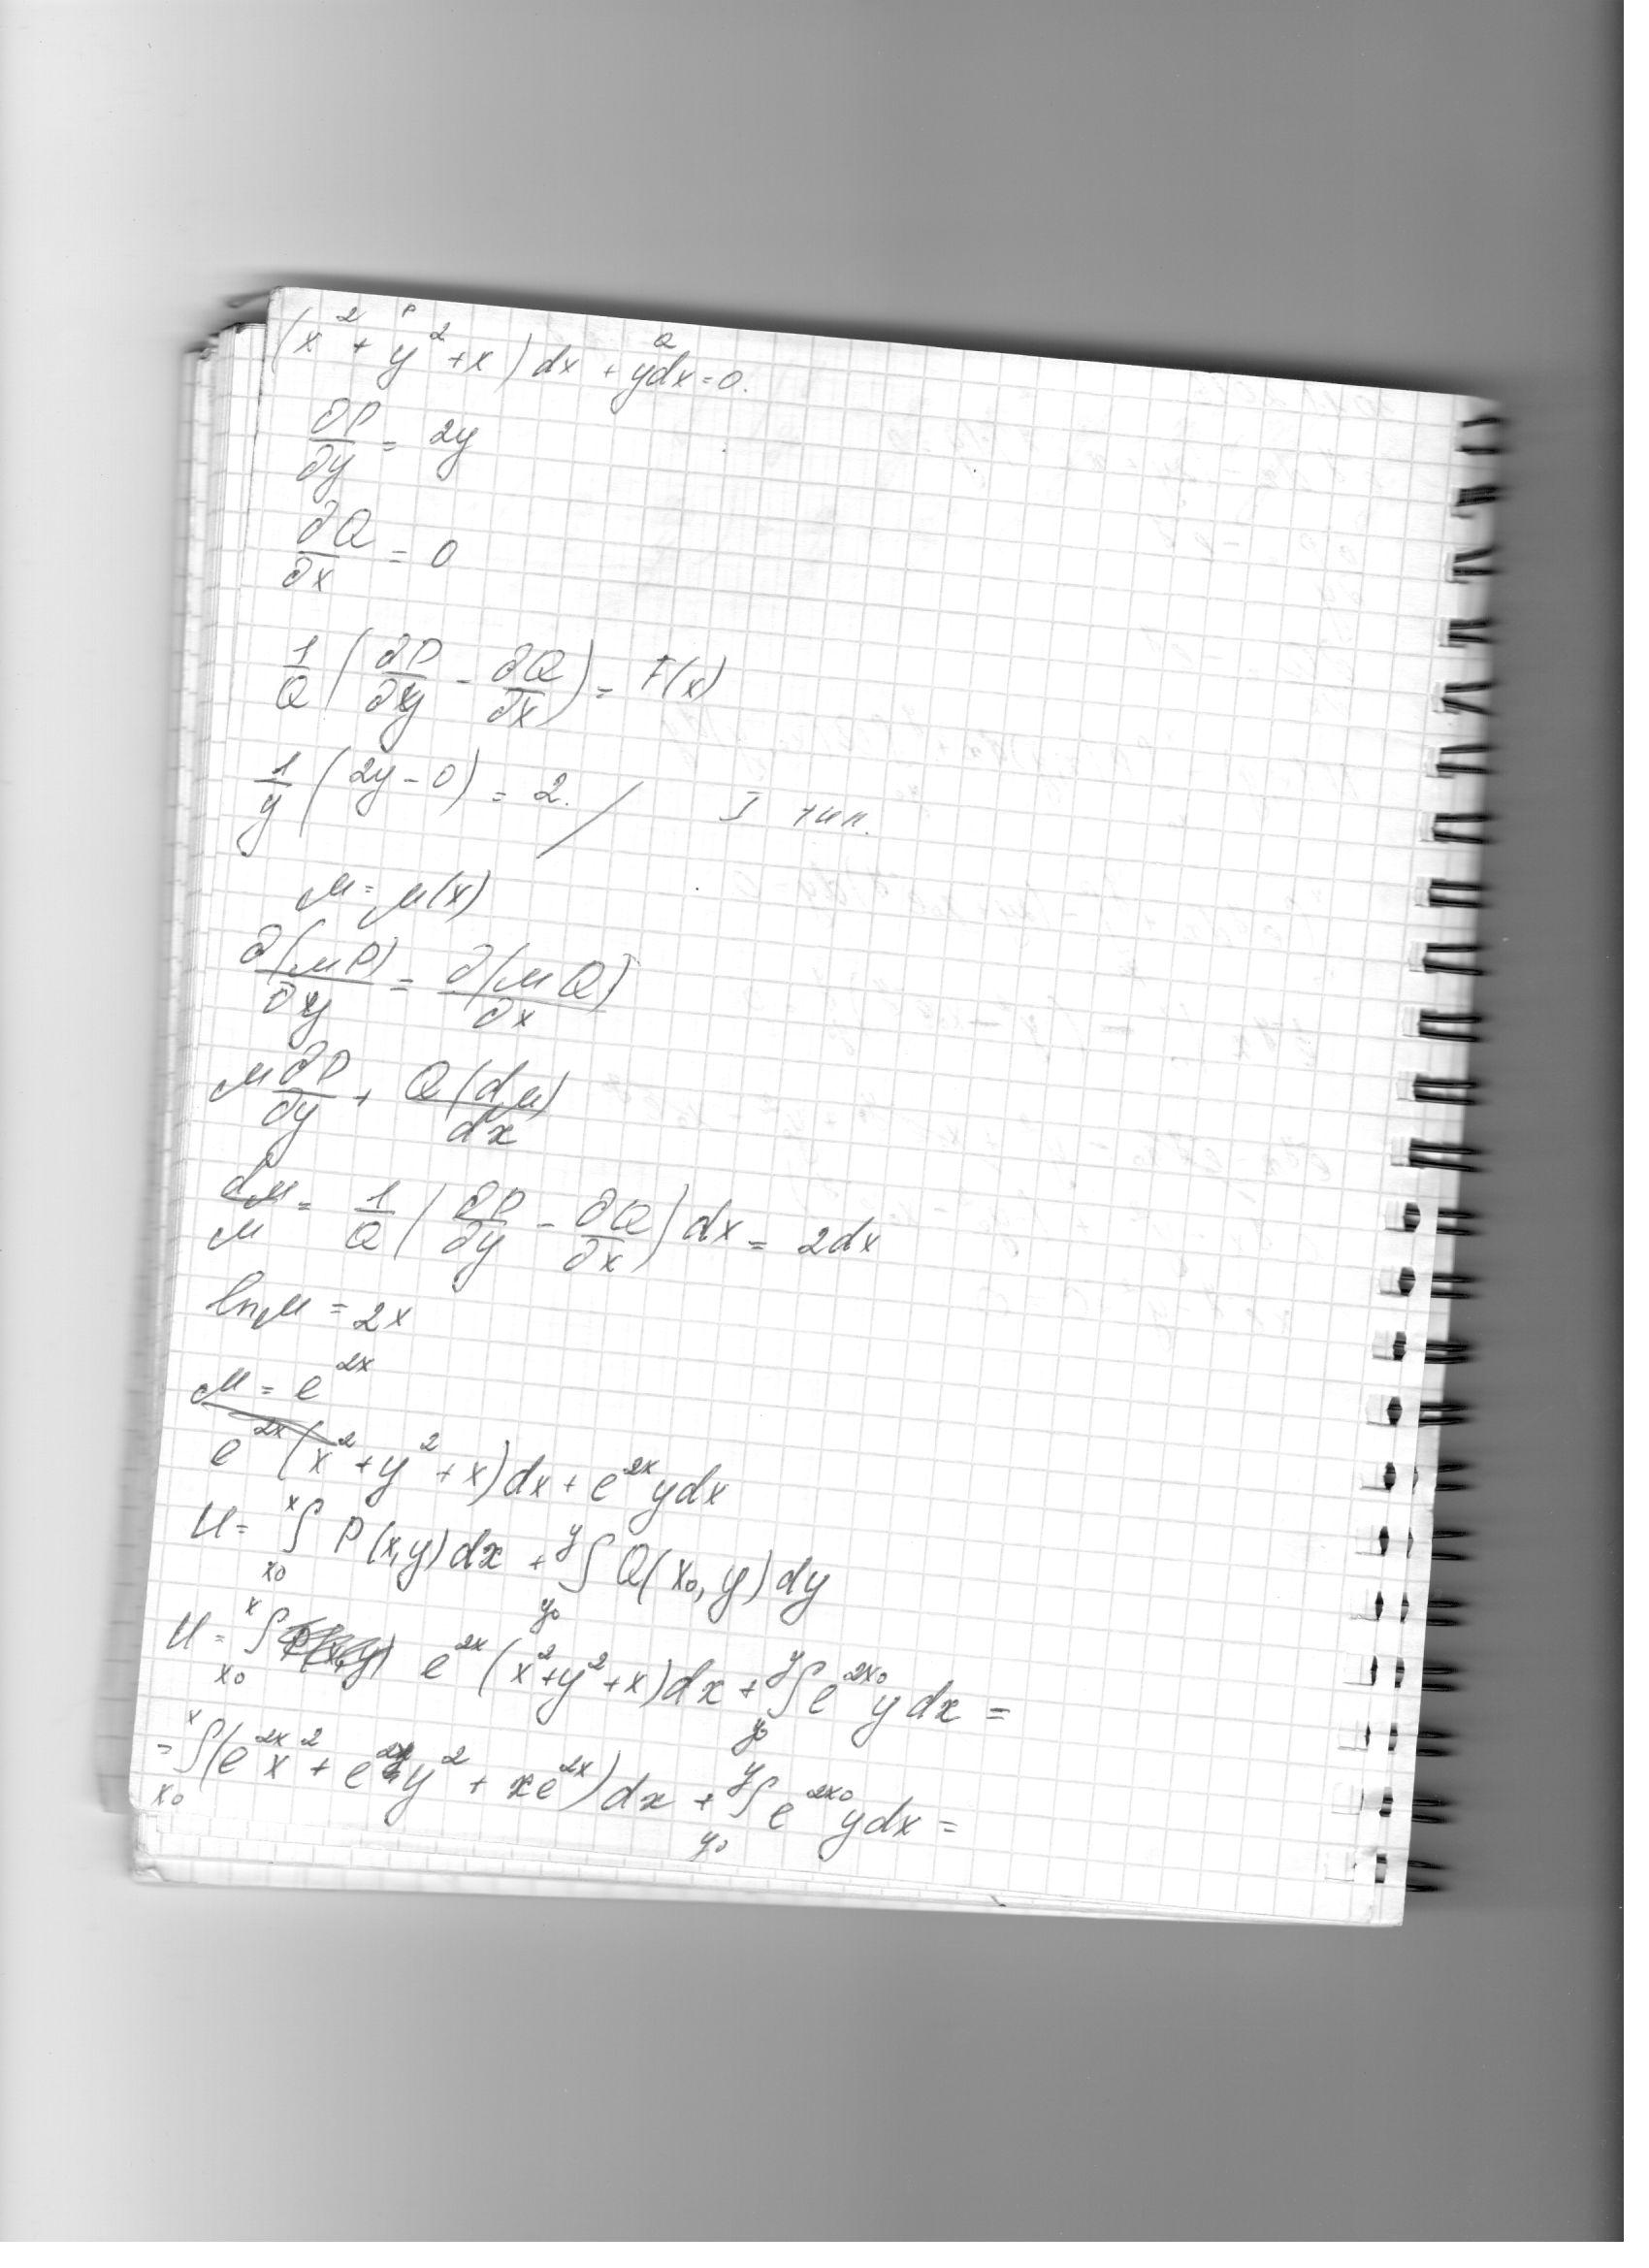 (x² + y² + x) dx + ydx = 0.
P Q
∂P/∂y = 2y
∂Q/∂x = 0
1/Q (∂P/∂y - ∂Q/∂x) = F(x)
1/y (2y - 0) = 2. / I тип.
μ = μ(x)
∂(μP)/∂y = ∂(μQ)/∂x
μ ∂P/∂y + Q(dμ)/dx
dμ/μ = 1/Q (∂P/∂y - ∂Q/∂x) dx = 2dx
ln μ = 2x
μ = e^{2x}
e^{2x}(x² + y² + x)dx + e^{2x}ydx
U = ∫_{x₀}^{x} P(x,y)dx + ∫_{y₀}^{y} Q(x₀, y)dy
U = ∫_{x₀}^{x} e^{2x}(x² + y² + x)dx + ∫_{y₀}^{y} e^{2x₀}ydx =
= ∫_{x₀}^{x} (e^{2x}x² + e^{2x}y² + xe^{2x})dx + ∫_{y₀}^{y} e^{2x₀}ydx =